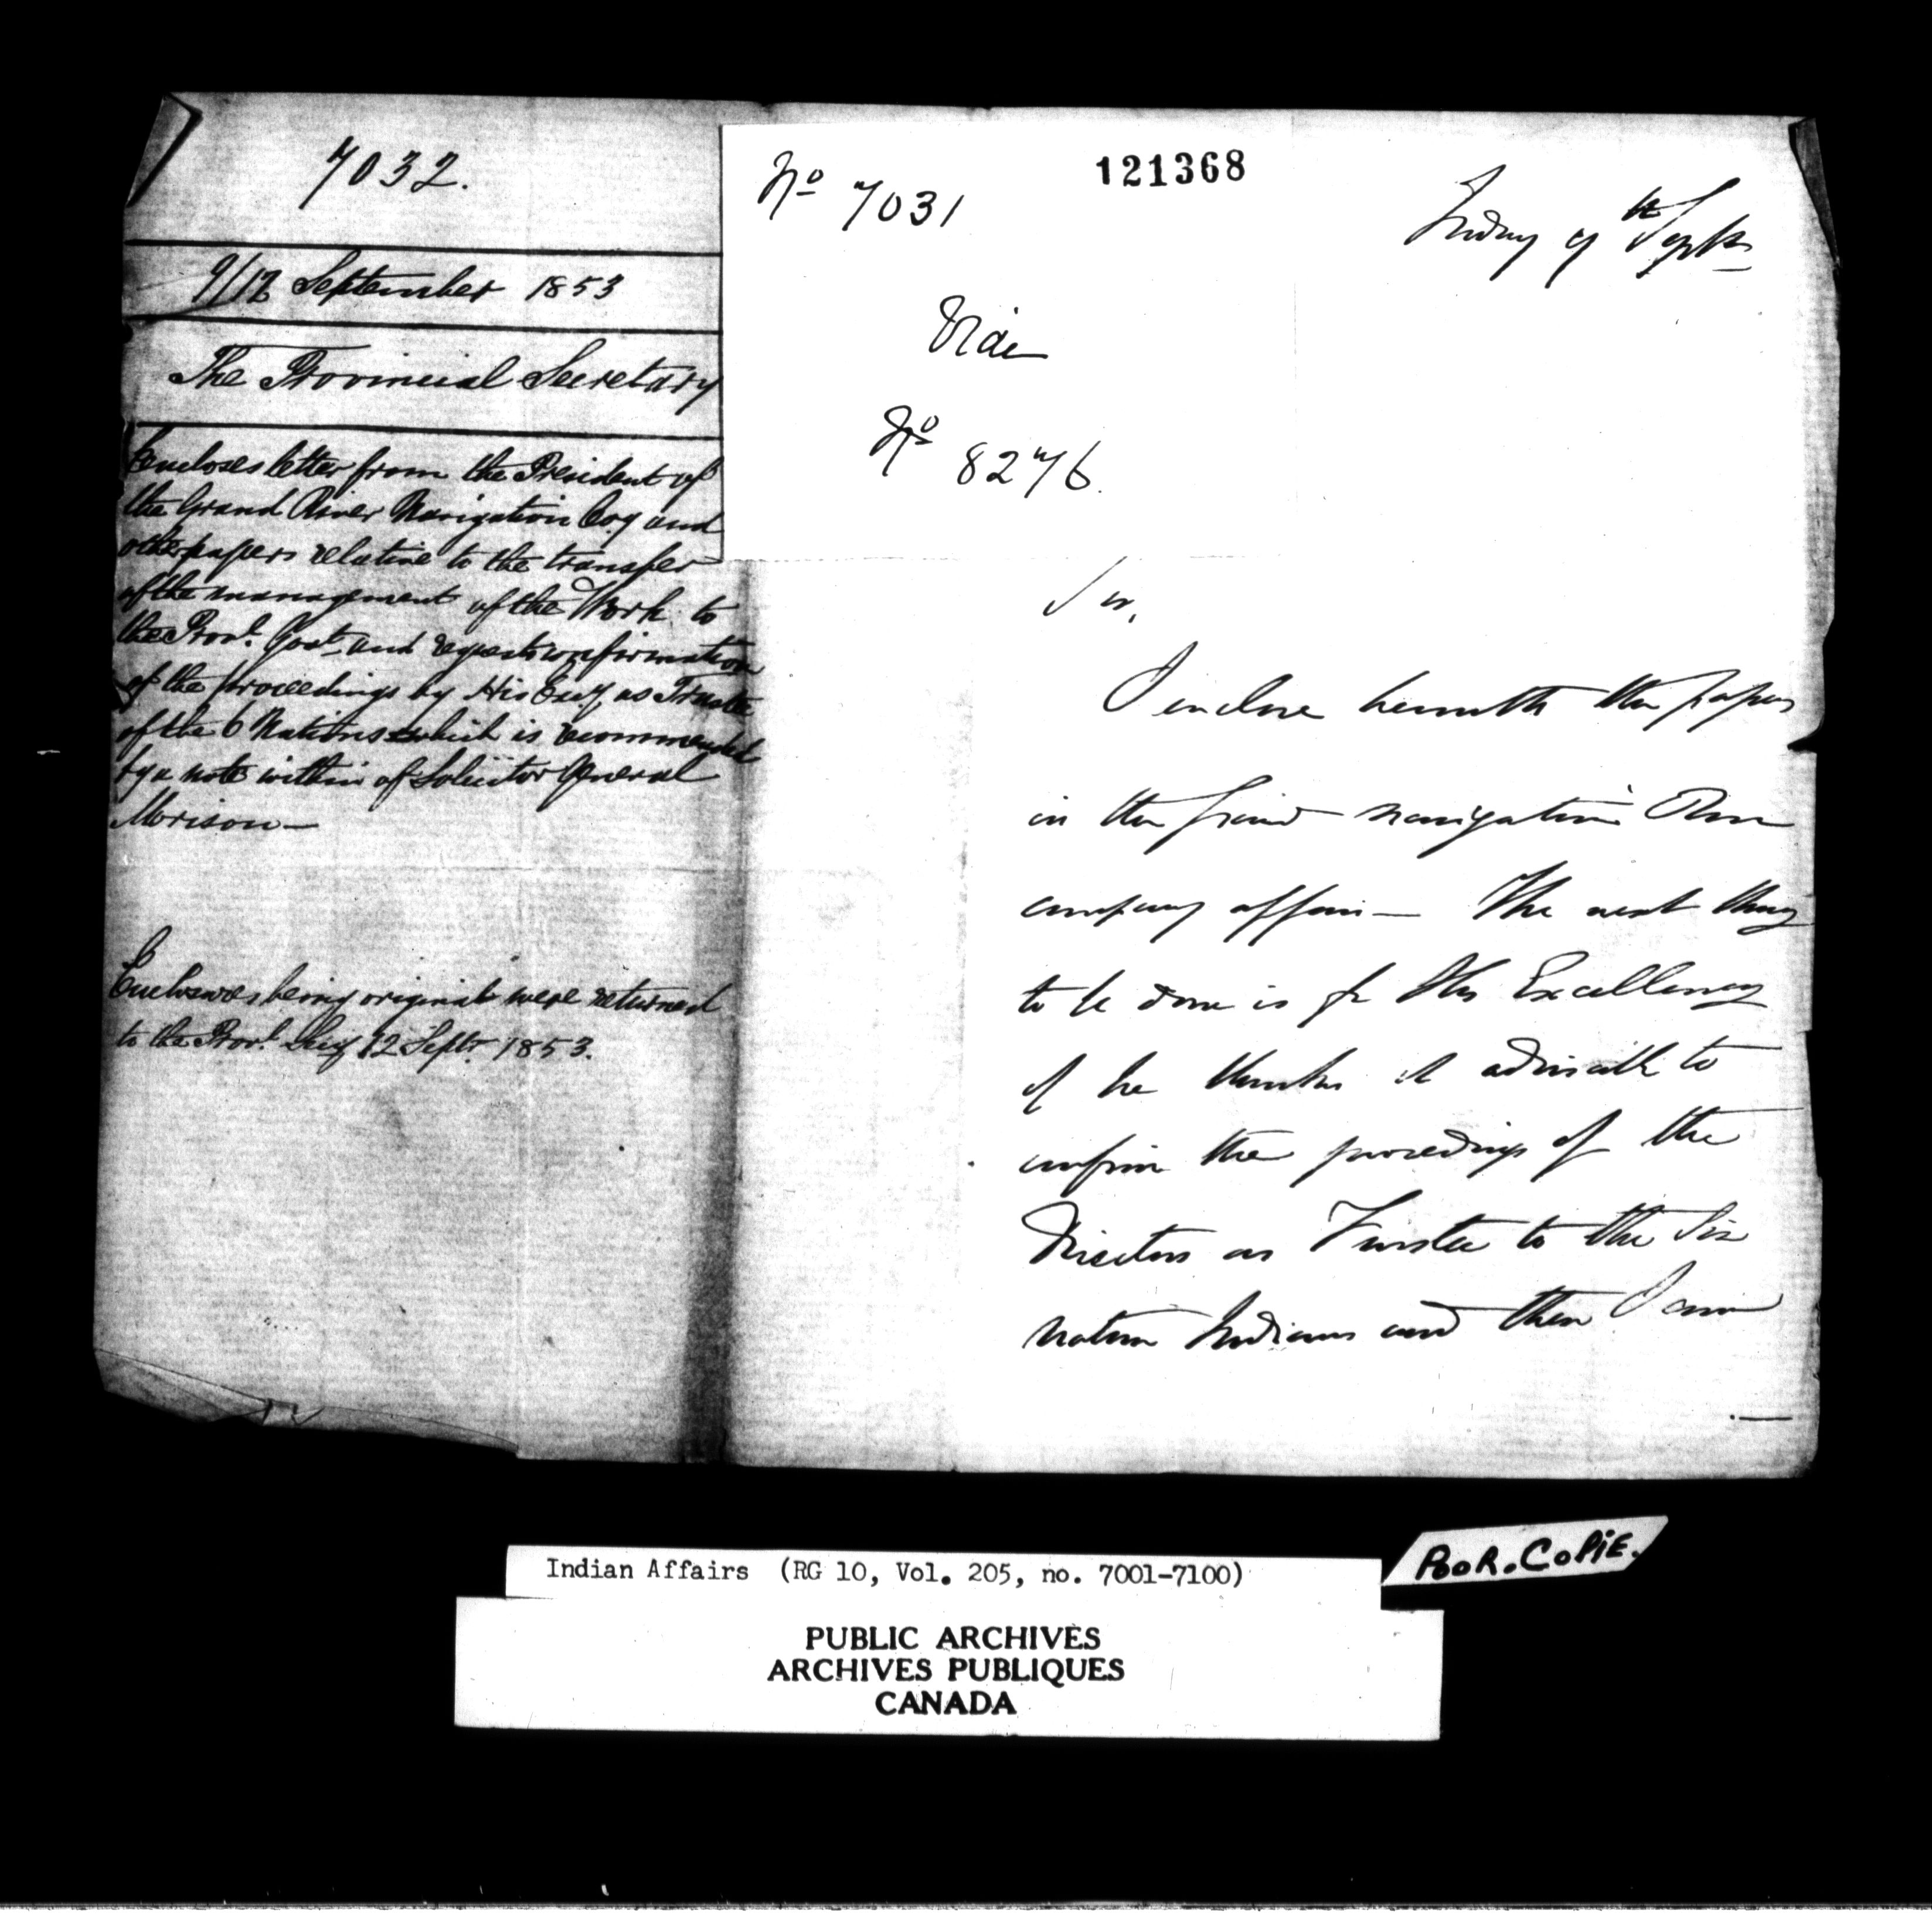 7032.
9/12 September 1853
The Provincial Secretary
Encloses letter from the President of
the Grand River Navigation Coy and
other papers relative to the transfer
of the management of the Work to
the Provl. Govt. and requests confirmation
of the proceedings by His Excy, as Trustee
of the 6 Nations which is recommended
by a note within of Solicitor General
Morison—
Enclosures being original were returned
to the Provl. Secy 12 Septr. 1853.
No 7031
121368
Vide
No 8276.
Friday 9th Septr
Sir,
I enclose herewith the papers
in the Grand navigation River
company affair— The next thing
to be done is for His Excellency
if he thinks it advisable to
confirm the proceedings of the
Directors as Trustee to the Six
nation Indians and then I am
Indian Affairs (RG 10, Vol. 205, no. 7001-7100)
POOR.COPIE.
PUBLIC ARCHIVES
ARCHIVES PUBLIQUES
CANADA